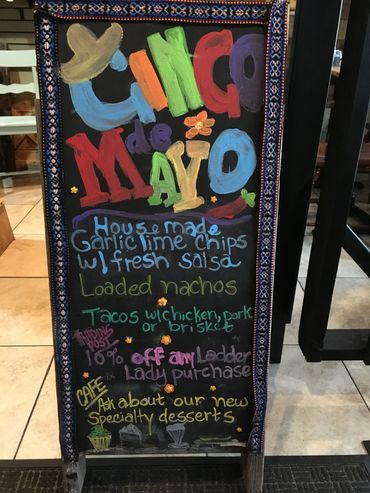 CINCO
de
MAYO
House made
Garlic lime chips
w/ fresh salsa
Loaded nachos
Tacos w/chicken, pork
or brisket
10% off any Ladder
Lady purchase
CAFE
Ask about our new
Specialty desserts